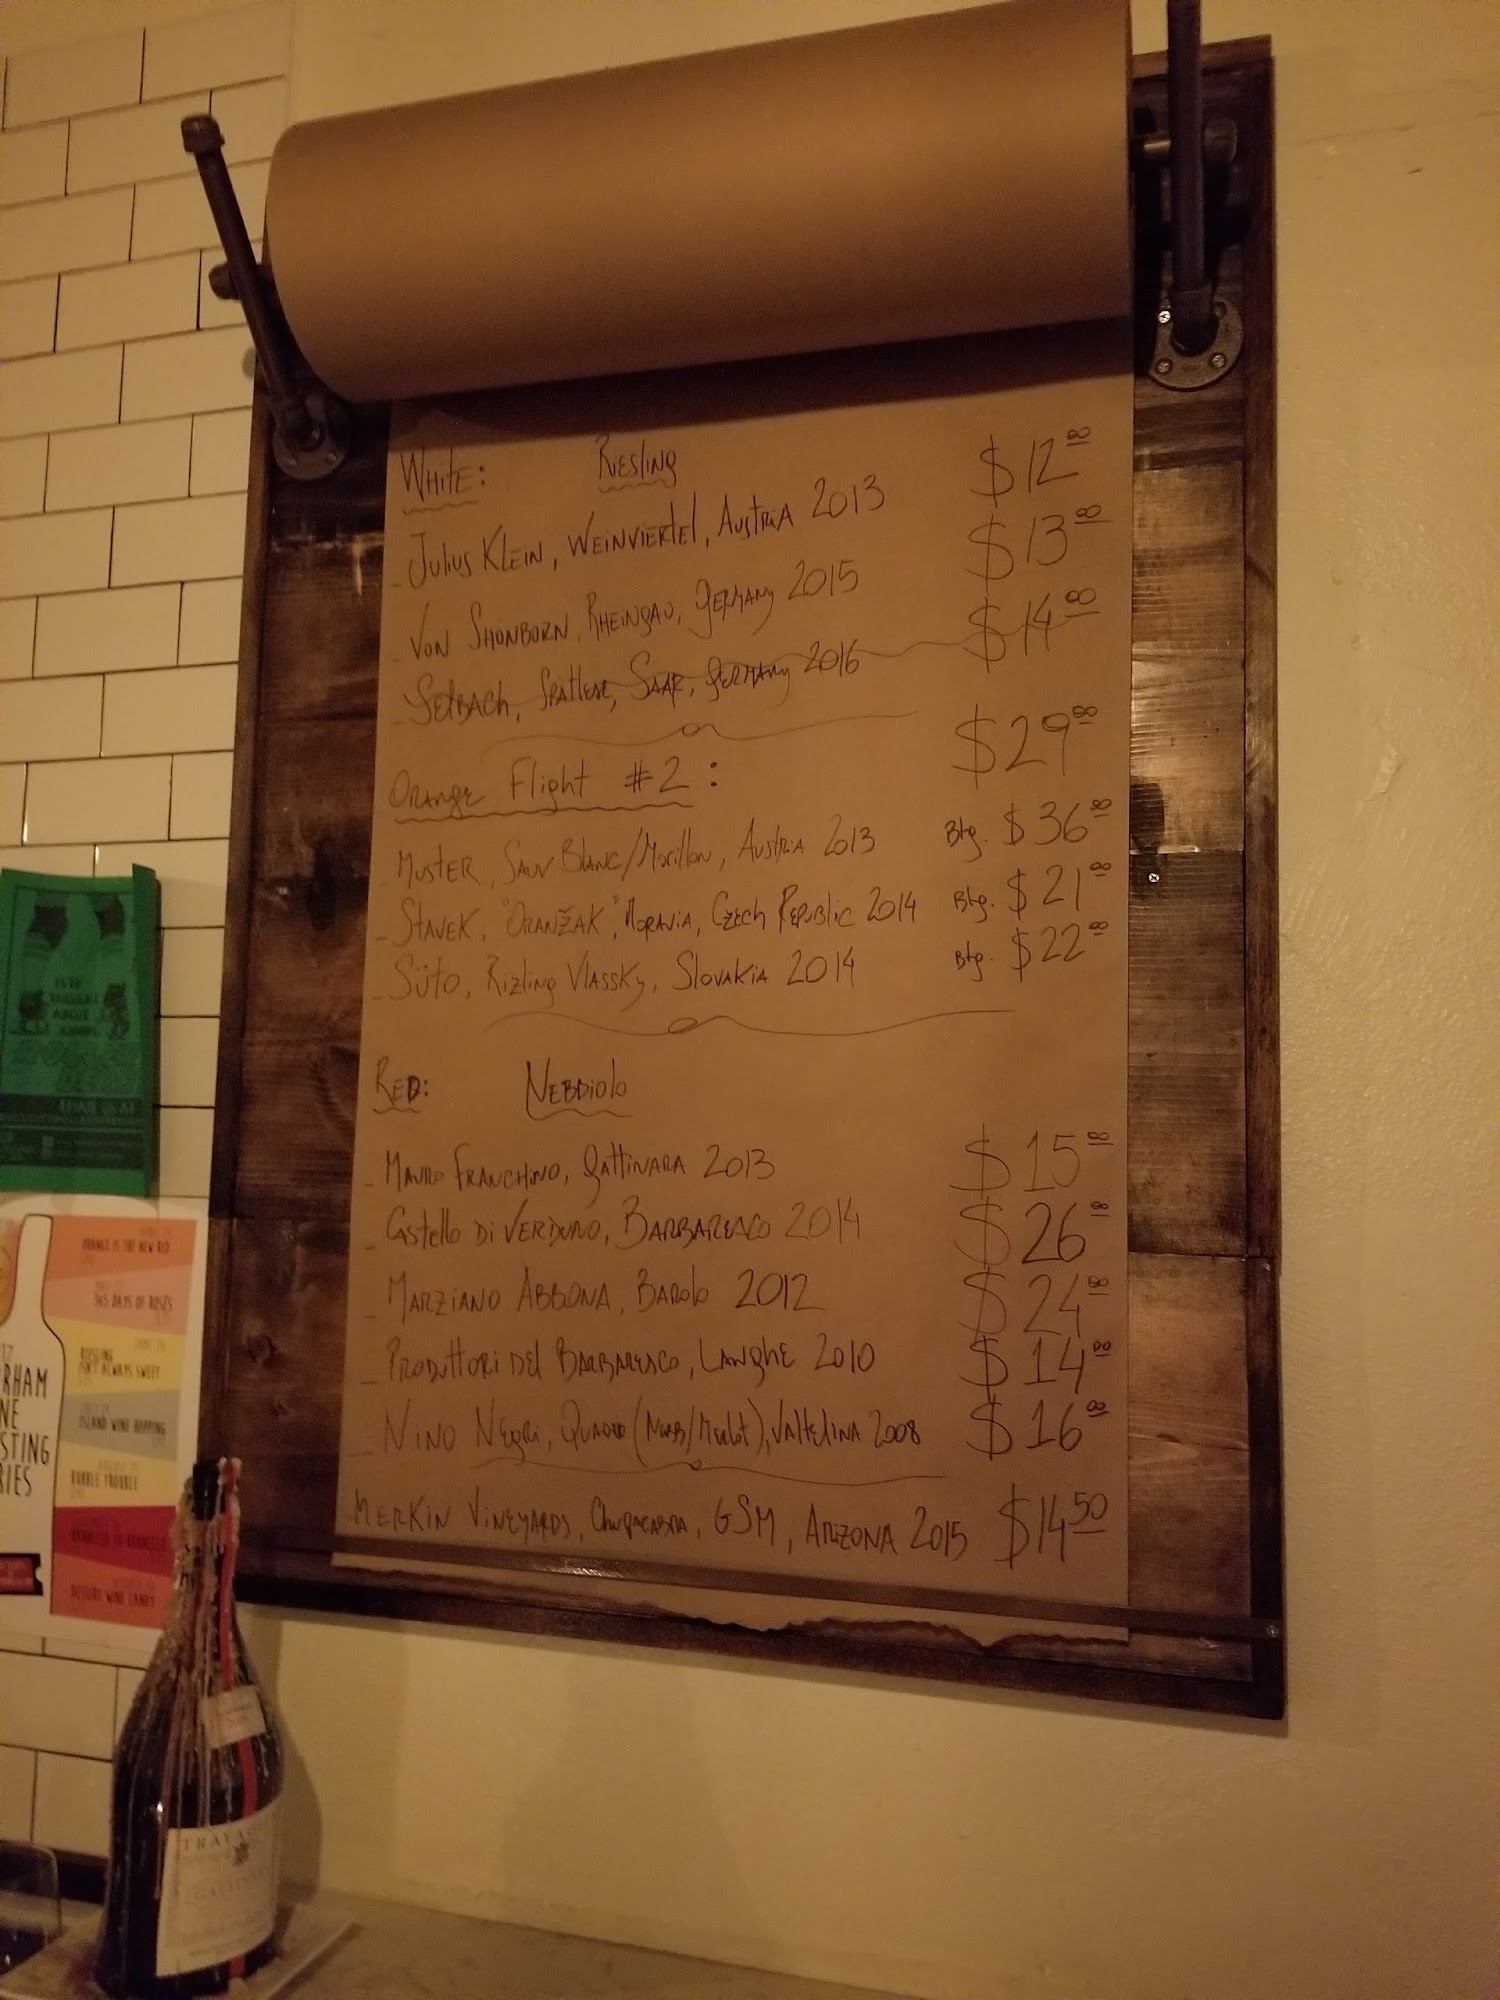 White: Riesling
- Julius Klein, Weinviertel, Austria 2013 $12.00
- Von Shonborn, Rheingau, Germany 2015 $13.00
- Selbach, Spätlese, Saar, Germany 2016 $14.00
Orange Flight #2: $29.00
- Muster, Sauv Blanc/Morillon, Austria 2013 Btg. $36.00
- Stavek, "Oranžak", Moravia, Czech Republic 2014 Btg. $21.00
- Süto, Rizling Vlassky, Slovakia 2014 Btg. $22.00
Red: Nebbiolo
- Mauro Franchino, Gattinara 2013 $15.00
- Castello di Verduno, Barbaresco 2014 $26.00
- Marziano Abbona, Barolo 2012 $24.00
- Produttori del Barbaresco, Langhe 2010 $14.00
- Nino Negri, Quadio (Nebb/Merlot), Valtellina 2008 $16.00
Merkin Vineyards, Chupacabra, GSM, Arizona 2015 $14.50
ORANGE IS THE NEW RED
365 DAYS OF ROSÉS
RIESLING
ISN'T ALWAYS SWEET
ISLAND WINE HOPPING
BUBBLE TROUBLE
BRUNELLO TO BRUNELLO
DESSERT WINE CANDY
RHAM
NE
STING
RIES